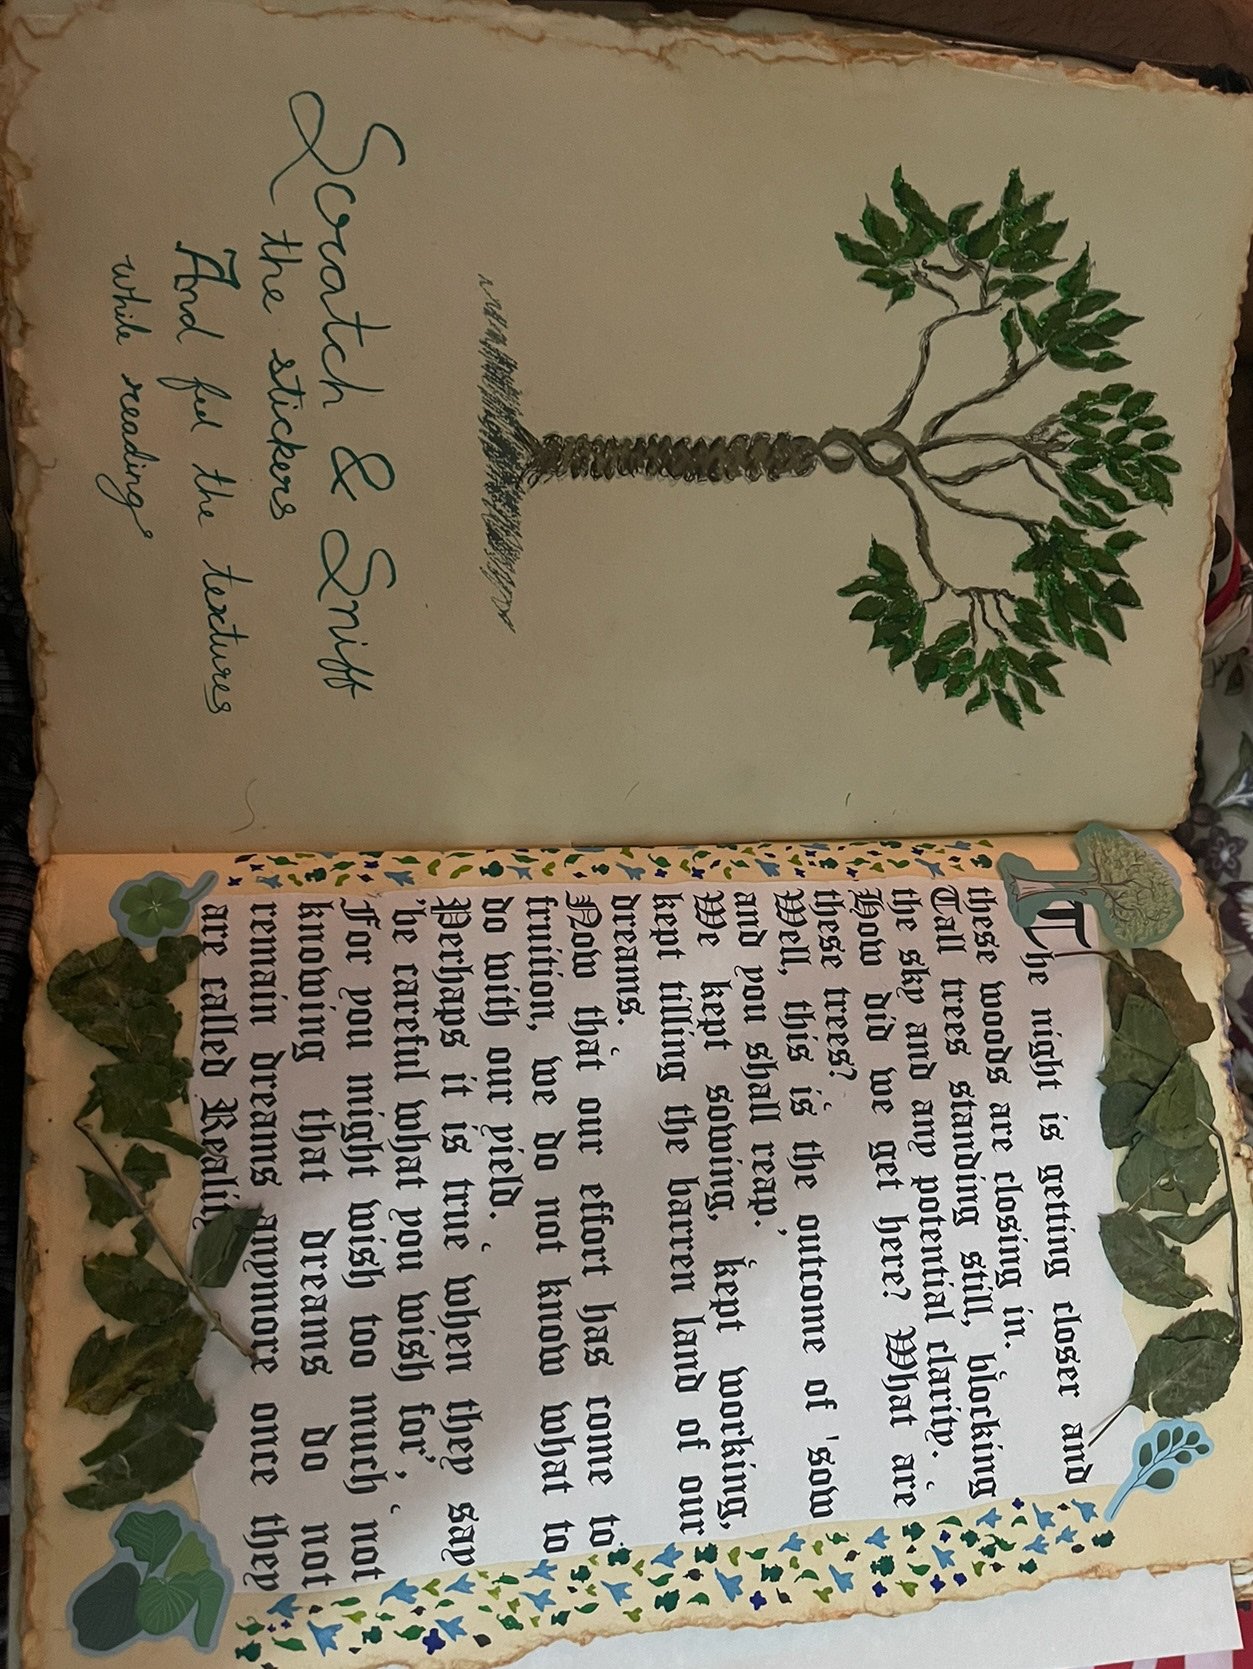 Scratch & Sniff
the stickers
And feel the textures
while reading
The night is getting closer and
these woods are closing in.
Tall trees standing still, blocking
the sky and any potential clarity.
How did we get here? What are
these trees?
Well, this is the outcome of 'sow
and you shall reap.'
We kept sowing, kept working,
kept tilling the barren land of our
dreams.
Now that our effort has come to
fruition, we do not know what to
do with our yield.
Perhaps it is true when they say
'be careful what you wish for',
For you might wish too much not
knowing that dreams do not
remain dreams anymore once they
are called Reality